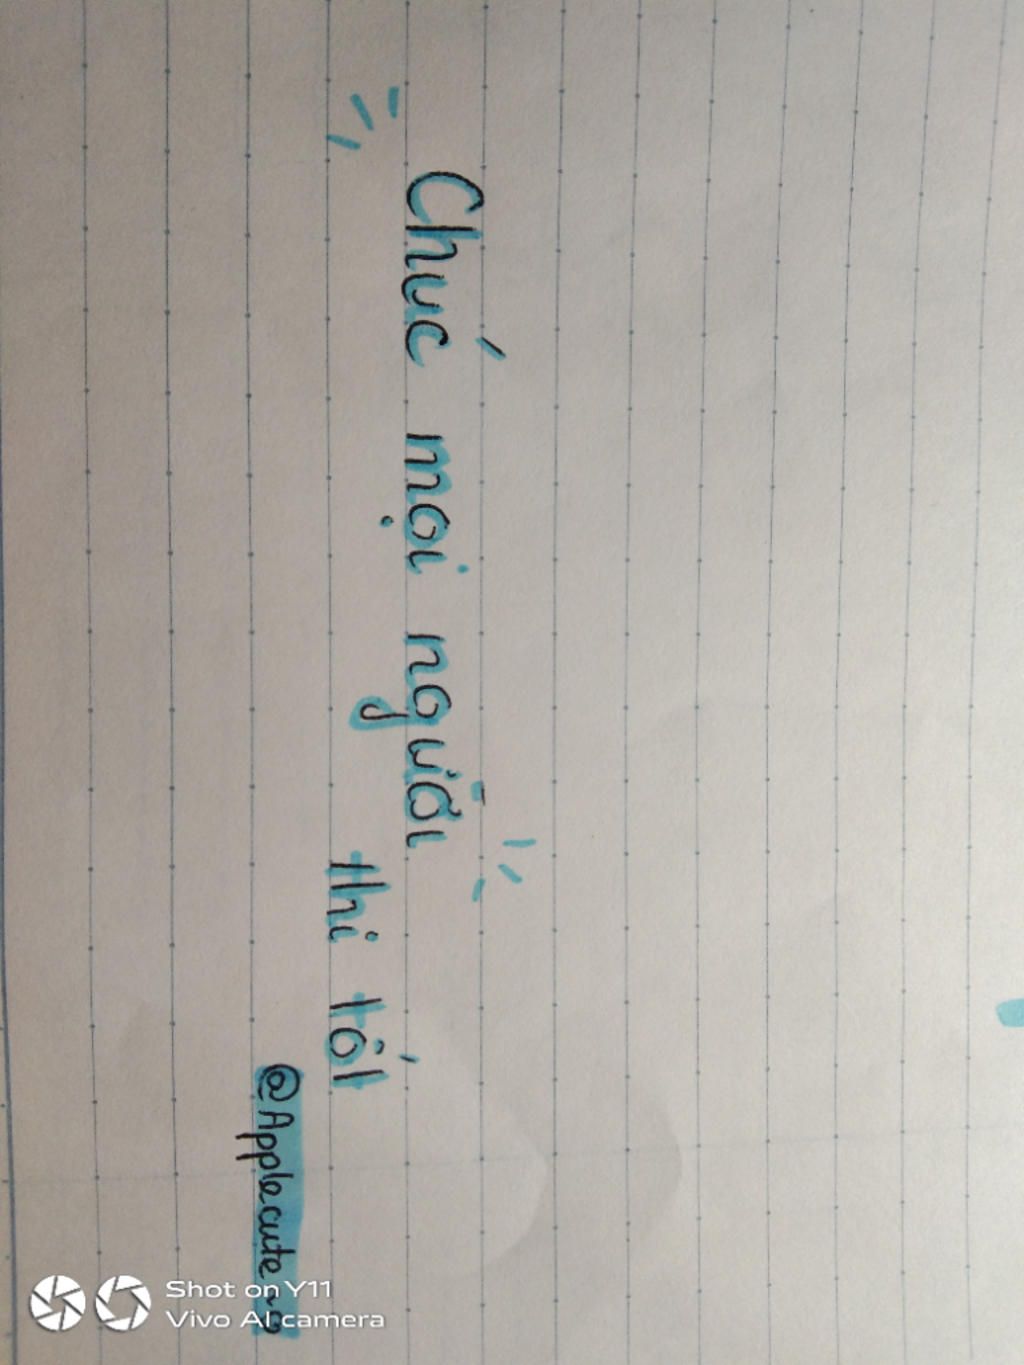 Chúc mọi người
thi tốt
@Applecute ~3
Shot on Y11
Vivo AI camera